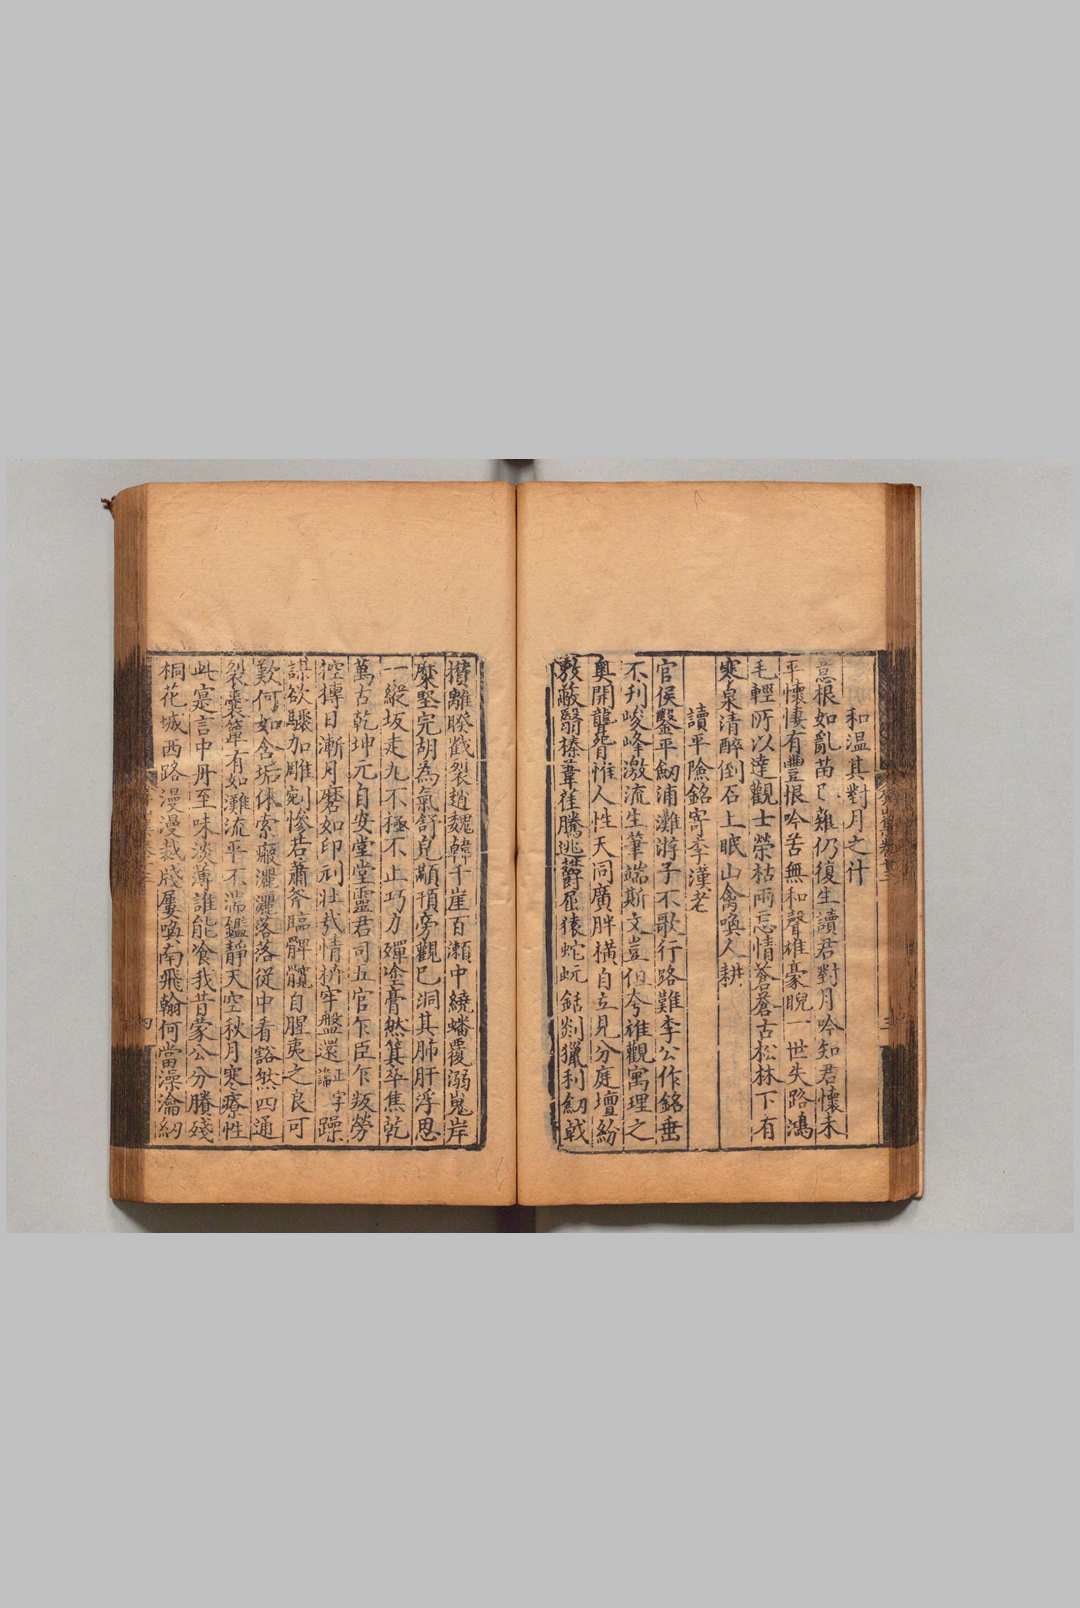 和温其對月之什
意根如亂苗已薙仍復生讀君對月吟知君懷未
平懷悽有豐恨吟苦無和聲雄豪睨一世失路鴻
毛輕所以達觀士榮枯兩忘情蒼蒼古松林下有
寒泉清醉倒石上眠山禽喚人耕
讀平險銘寄李漢老
官侯鑿平劒浦灘游子不歌行路難李公作銘垂
不刋峻峰激流生筆端斯文豈但夸雄觀寓理之
奥開聾瞽惟人性天同廣胖橫自立見分庭壇紛
敷蔽翳榛葦萑騰逃欝屈猿蛇蚖銛剡獵利劒戟
攢離睽戳裂趙魏韓千崖百瀬中繞蟠覆溺嵬岸
縻堅完胡為氣舒皃顓頇旁觀已洞其肺肝浮思
一縱坂走丸不極不止巧力殫塗膏然箕卒焦乾
萬古乾坤元自安堂堂靈君司五官乍臣乍叛勞
控摶日漸月磨如印刓壯哉情枿牢盤還論正字躁
謀欲驟加雕剜慘若蕭斧䐶髀髖自腥夷之良可
歎何如含垢休索瘢灑灑落落從中看豁然四通
裂囊簞有如灘流平不湍鑑靜天空秋月寒療性
此寔言中丹至味淡薄誰能飡我昔蒙公分賸殘
桐花城西路漫漫裁牋屢喚南飛翰何當澡瀹紉